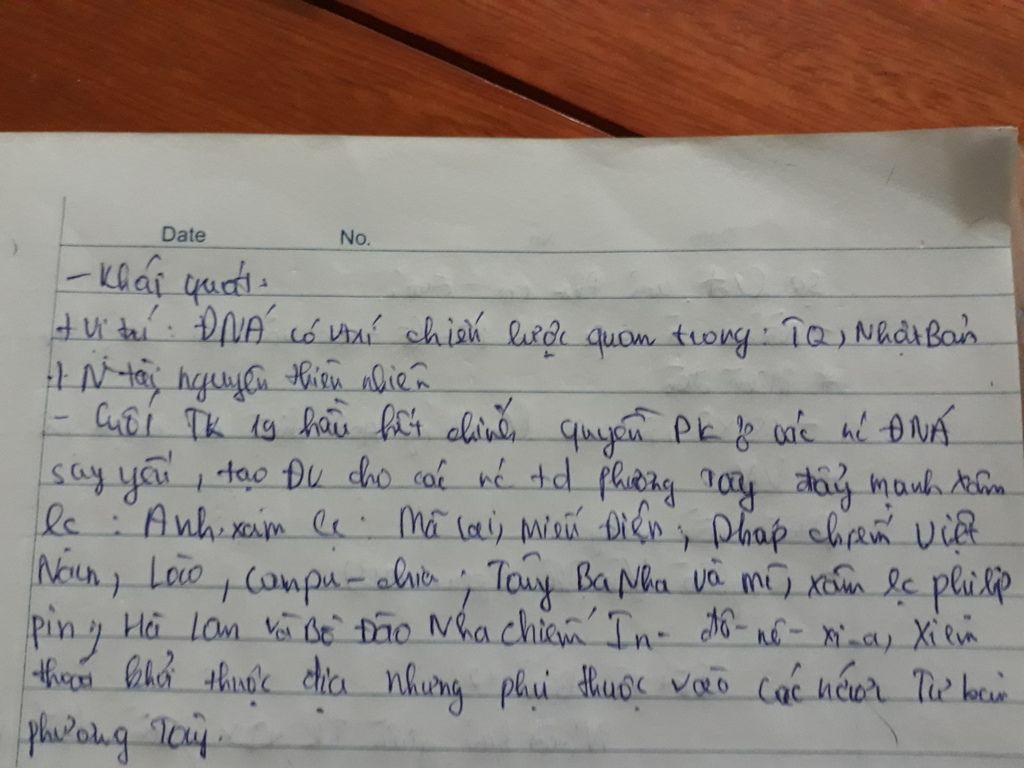 Date No.
- Khái quát:
+ Vị trí: ĐNÁ có vtrí chiến lược quan trọng: TQ, Nhật Bản
+ N tài nguyên thiên nhiên
- Cuối TK 19 hầu hết chính quyền PK ở các nc ĐNÁ
say yếu, tạo ĐK cho các nc td phương Tây đẩy mạnh xâm
lc: Anh xâm lc: Mã lai, Miến Điện; Pháp chiếm Việt
Nam, Lào, Campu-chia; Tây Ba Nha và mĩ, xâm lc philip
pin; Hà Lan và Bồ Đào Nha chiếm In-đô-nê-xi-a, Xiêm
thoát khỏi thuộc địa nhưng phụ thuộc vào các nước Tư bản
phương Tây.